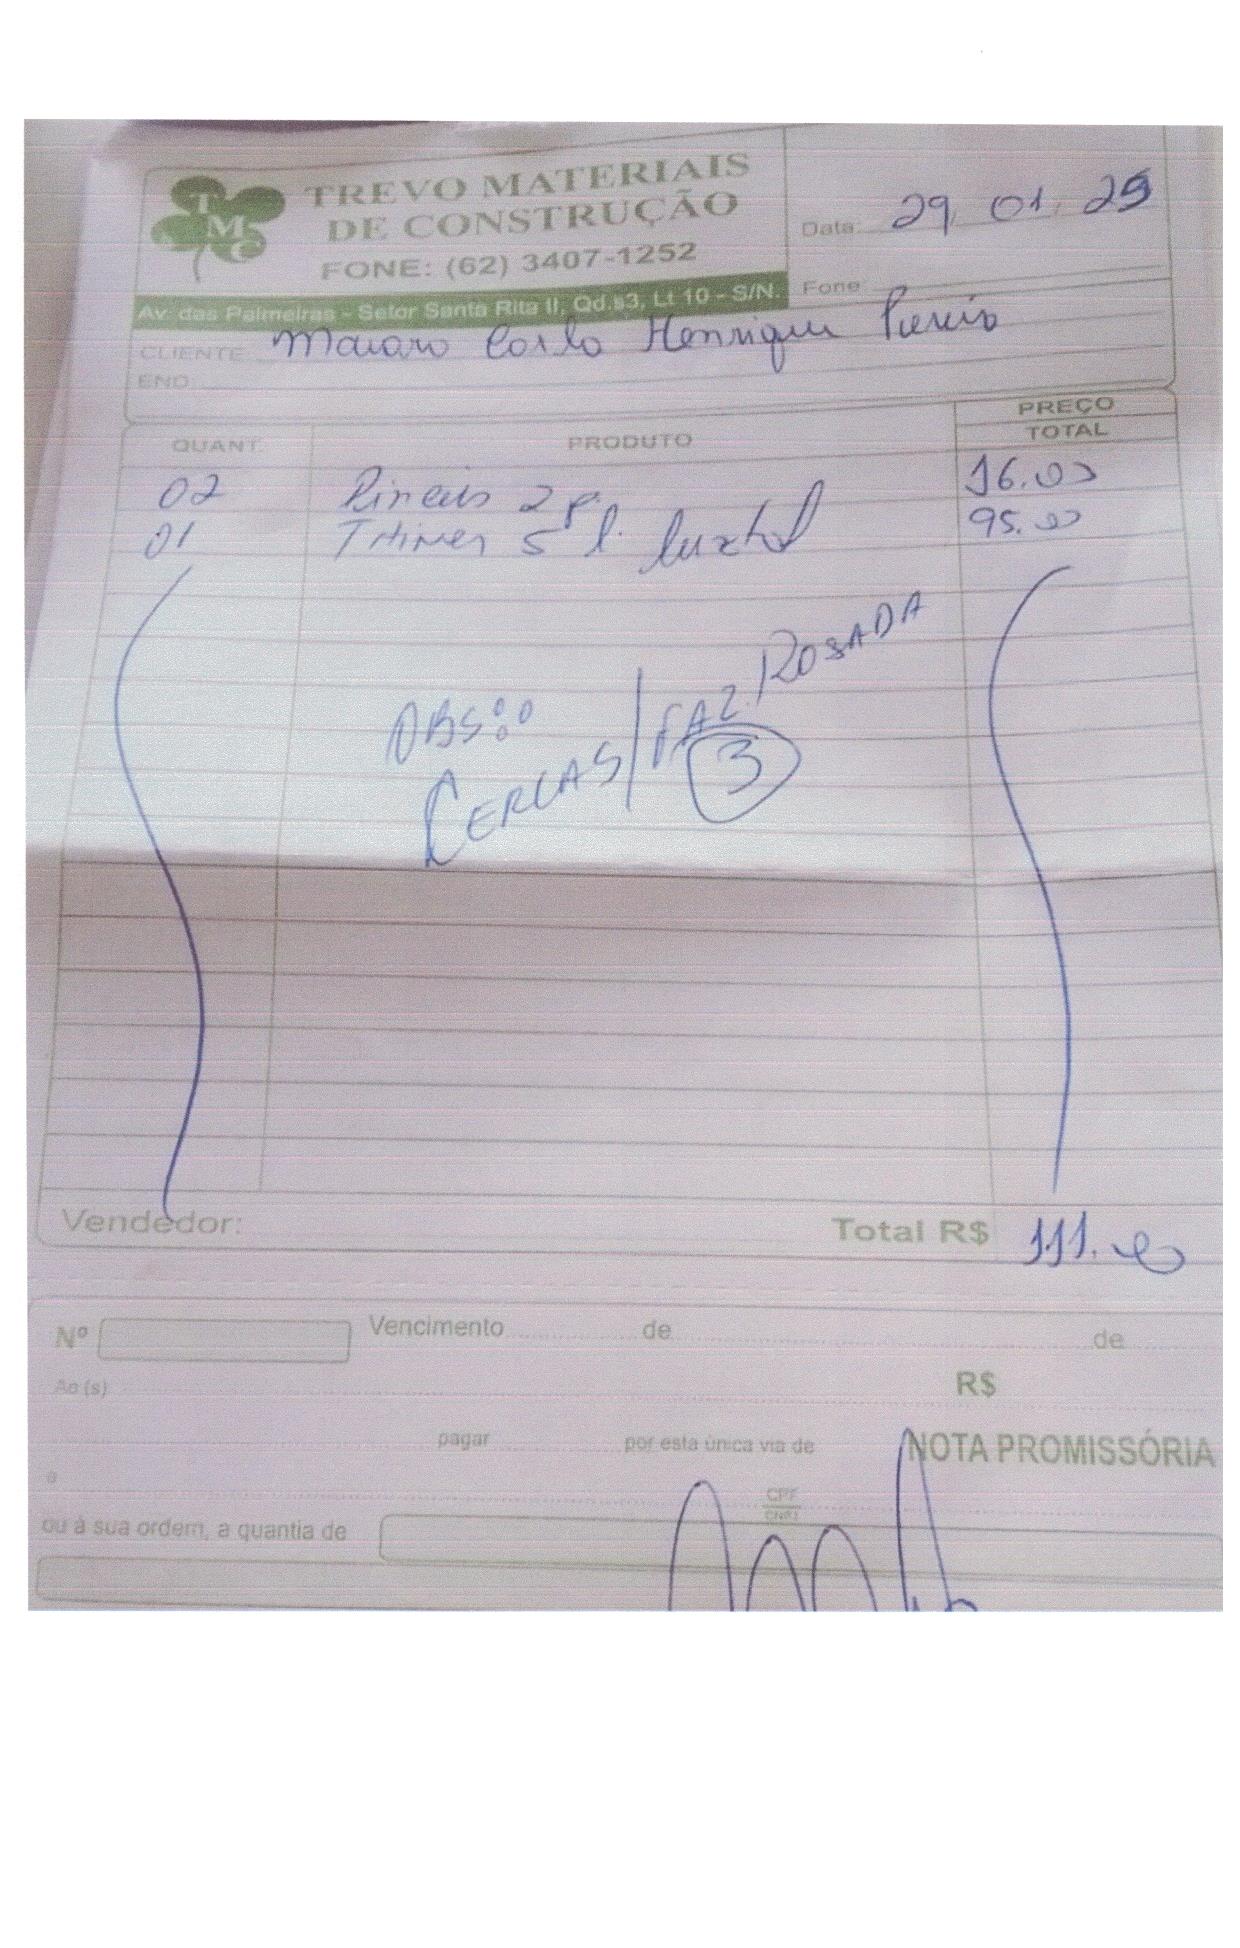 TMC
TREVO MATERIAIS
DE CONSTRUÇÃO
FONE: (62) 3407-1252
Av. das Palmeiras - Setor Santa Rita II, Qd.s3, Lt 10 - S/N.
Data: 29, 01, 25
Fone
CLIENTE Henrique
END
QUANT. PRODUTO PREÇO
TOTAL
02 2 16.00
01 5 l. 95.00
OBS:
CERCAS/FAZ. ROSADA
3
Vendedor: Total R$ 111.00
Nº Vencimento de de
Ao(s) R$
pagar por esta única via de NOTA PROMISSÓRIA
a CPF
CNPJ
ou à sua ordem, a quantia de